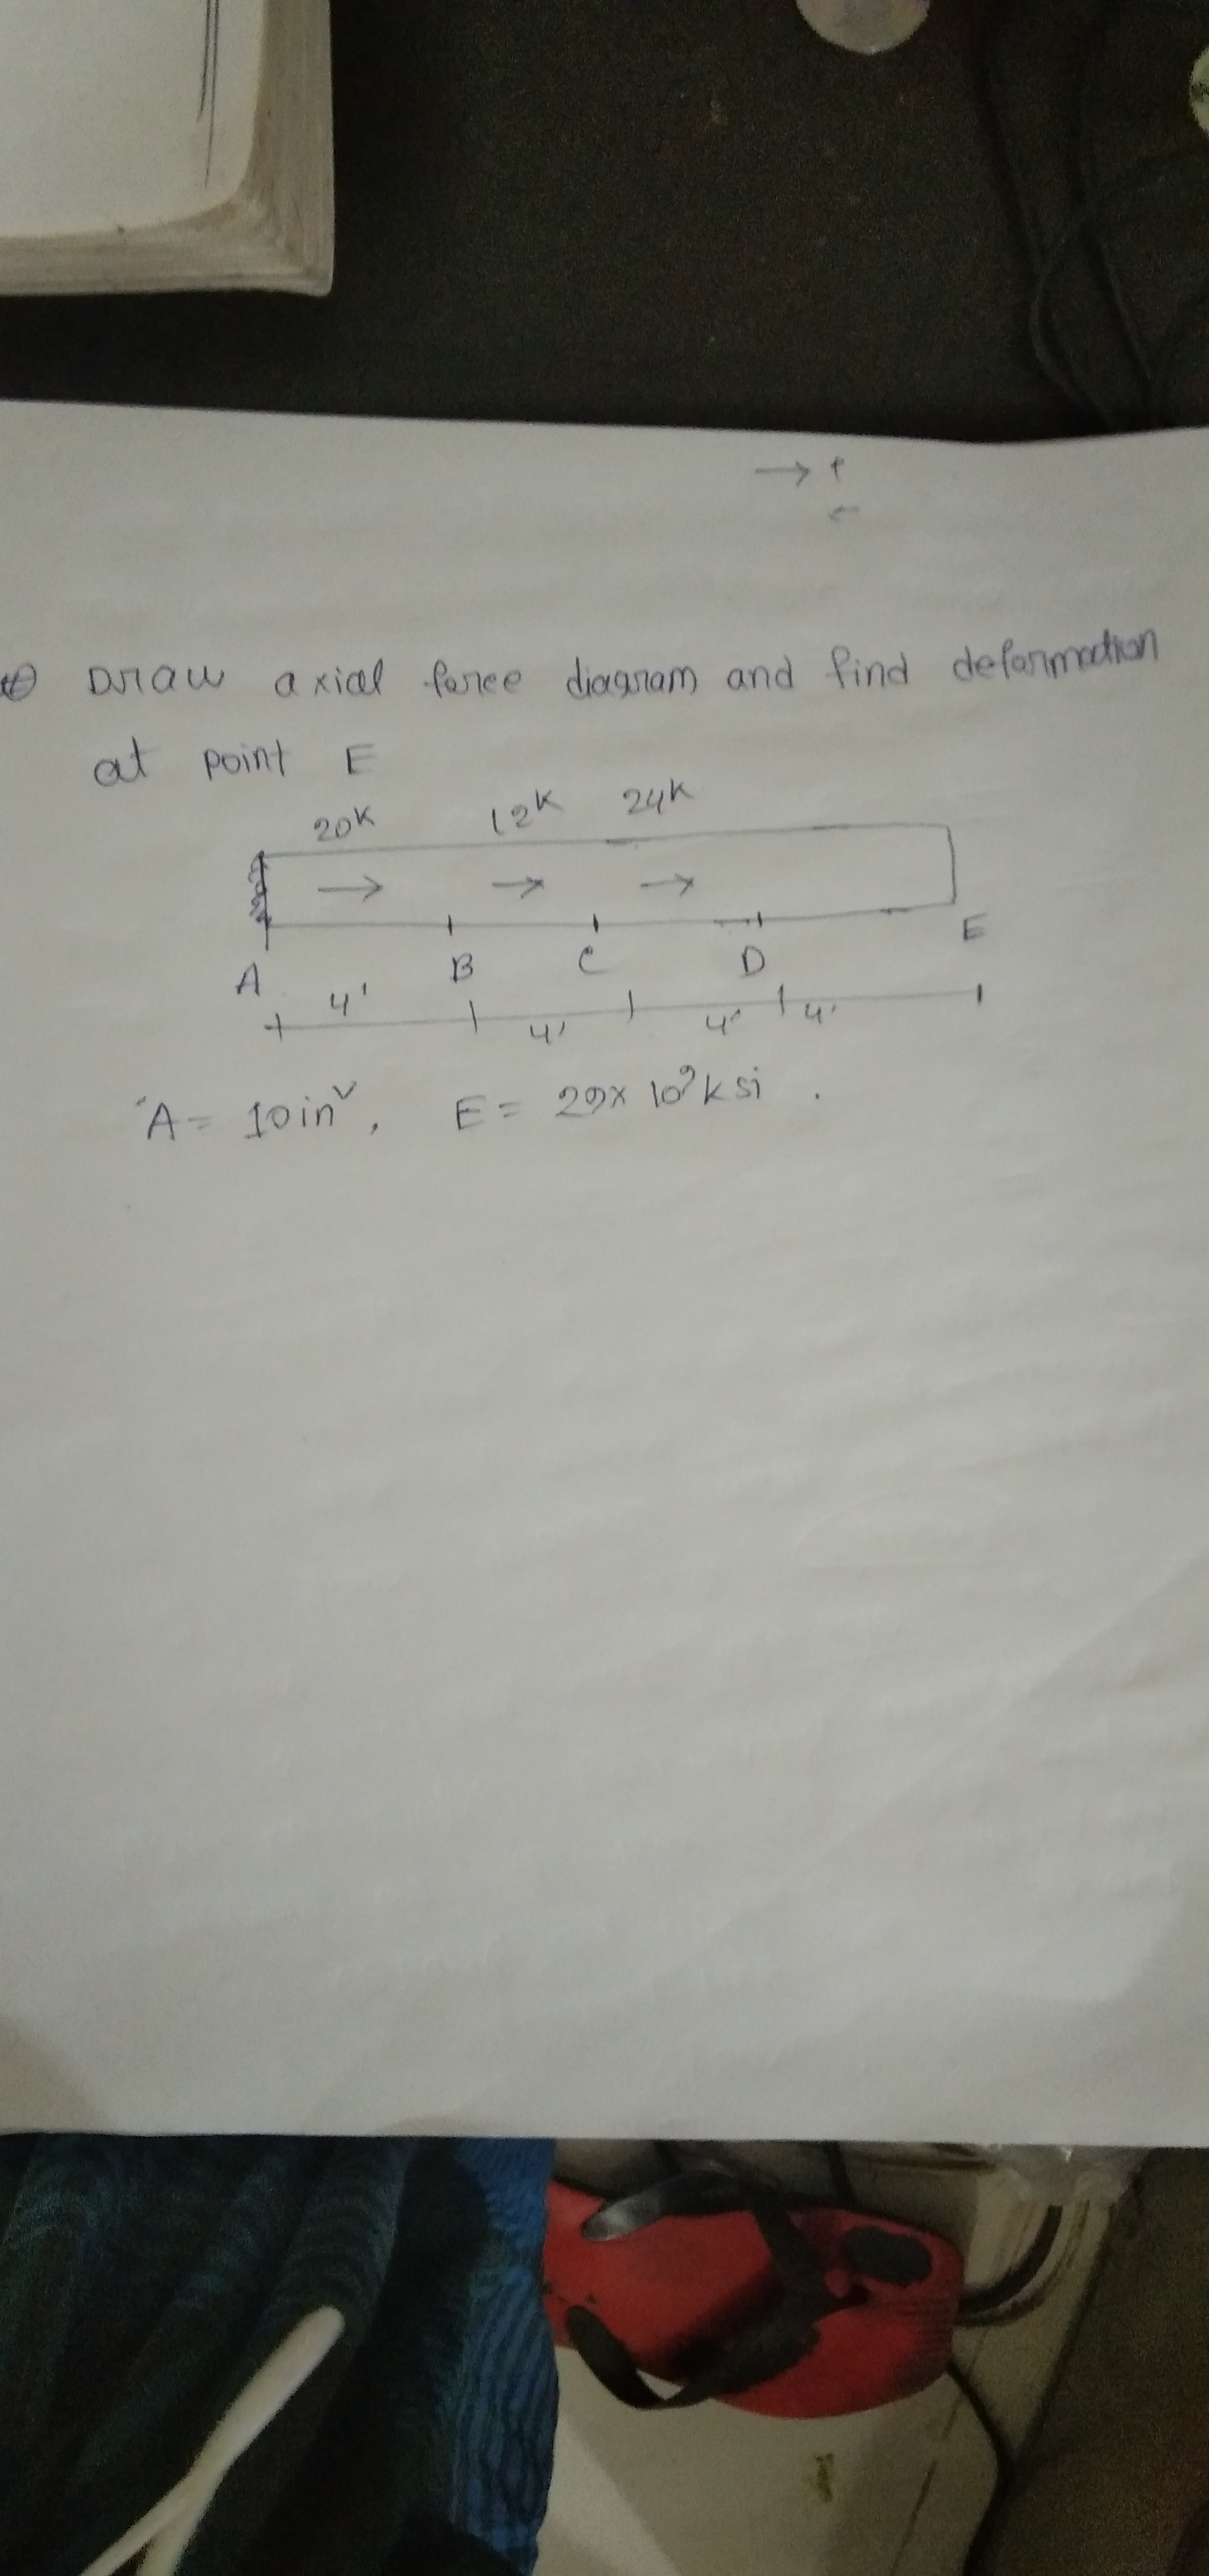 → P
←
Draw axial force diagram and find deformation
at point E
20K 12K 24K
→ → →
A B C D E
4' 4' 4' 4'
A = 10in², E = 29x10³ksi .